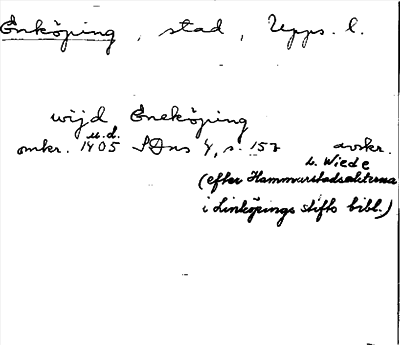 Enköping, stad, Upps. l.
wijd Eneköping
u.d.
omkr. 1405 SOns 4, s. 157 avskr.
L. Wiede
(efter Hammarstadsakterna
i Linköpings stifts bibl.)